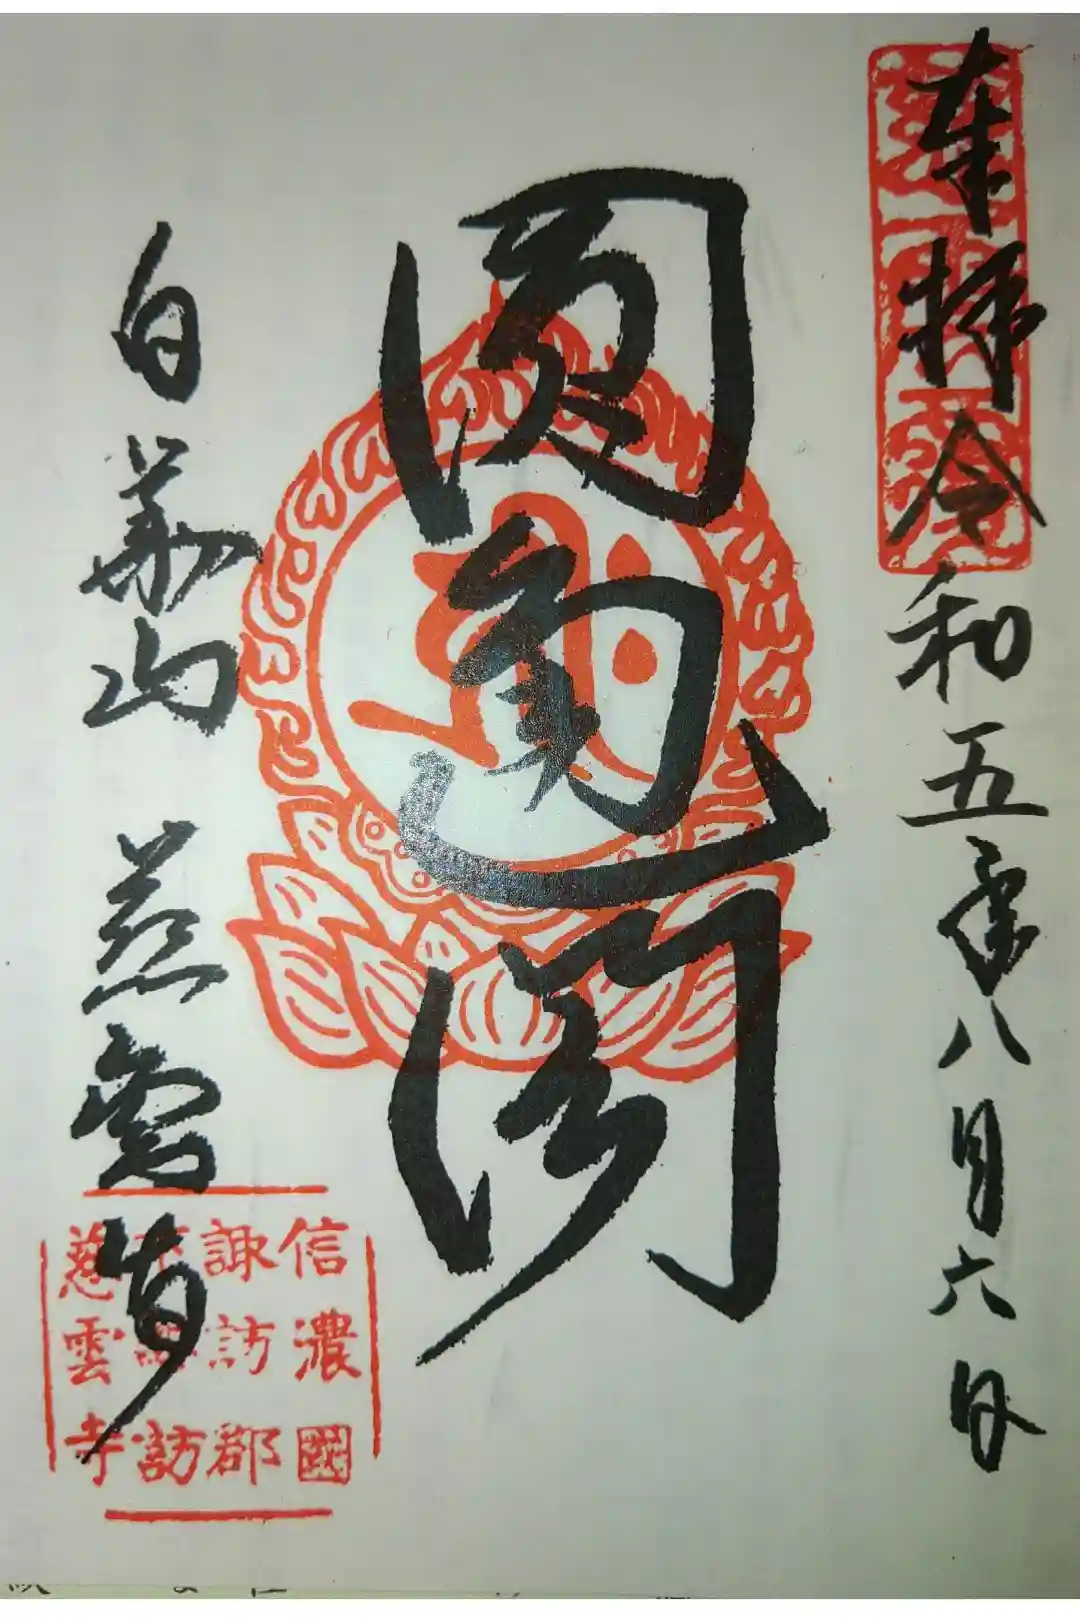 奉拝令和五年八月六日
圓通閣
白華山 慈雲寺
信濃國
諏訪郡
下諏訪
慈雲寺